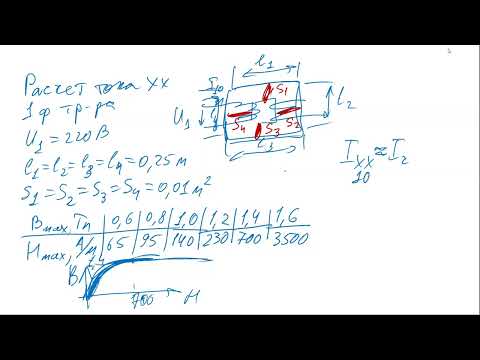 Расчет тока XX
1ф тр-ра
U₁ = 220 В
l₁ = l₂ = l₃ = l₄ = 0,25 м
S₁ = S₂ = S₃ = S₄ = 0,01 м²
l₁
S₁
I₁₀
U₁
S₄
S₂
l₂
S₃
l₃
I_XX ≈ I₂
10
Bmax, Тл | 0,6 | 0,8 | 1,0 | 1,2 | 1,4 | 1,6
Hmax, А/м | 65 | 95 | 140 | 230 | 700 | 3500
1,4
B
700
H